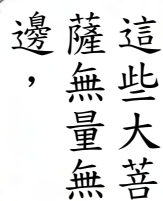 這些大菩
薩無量無
邊，